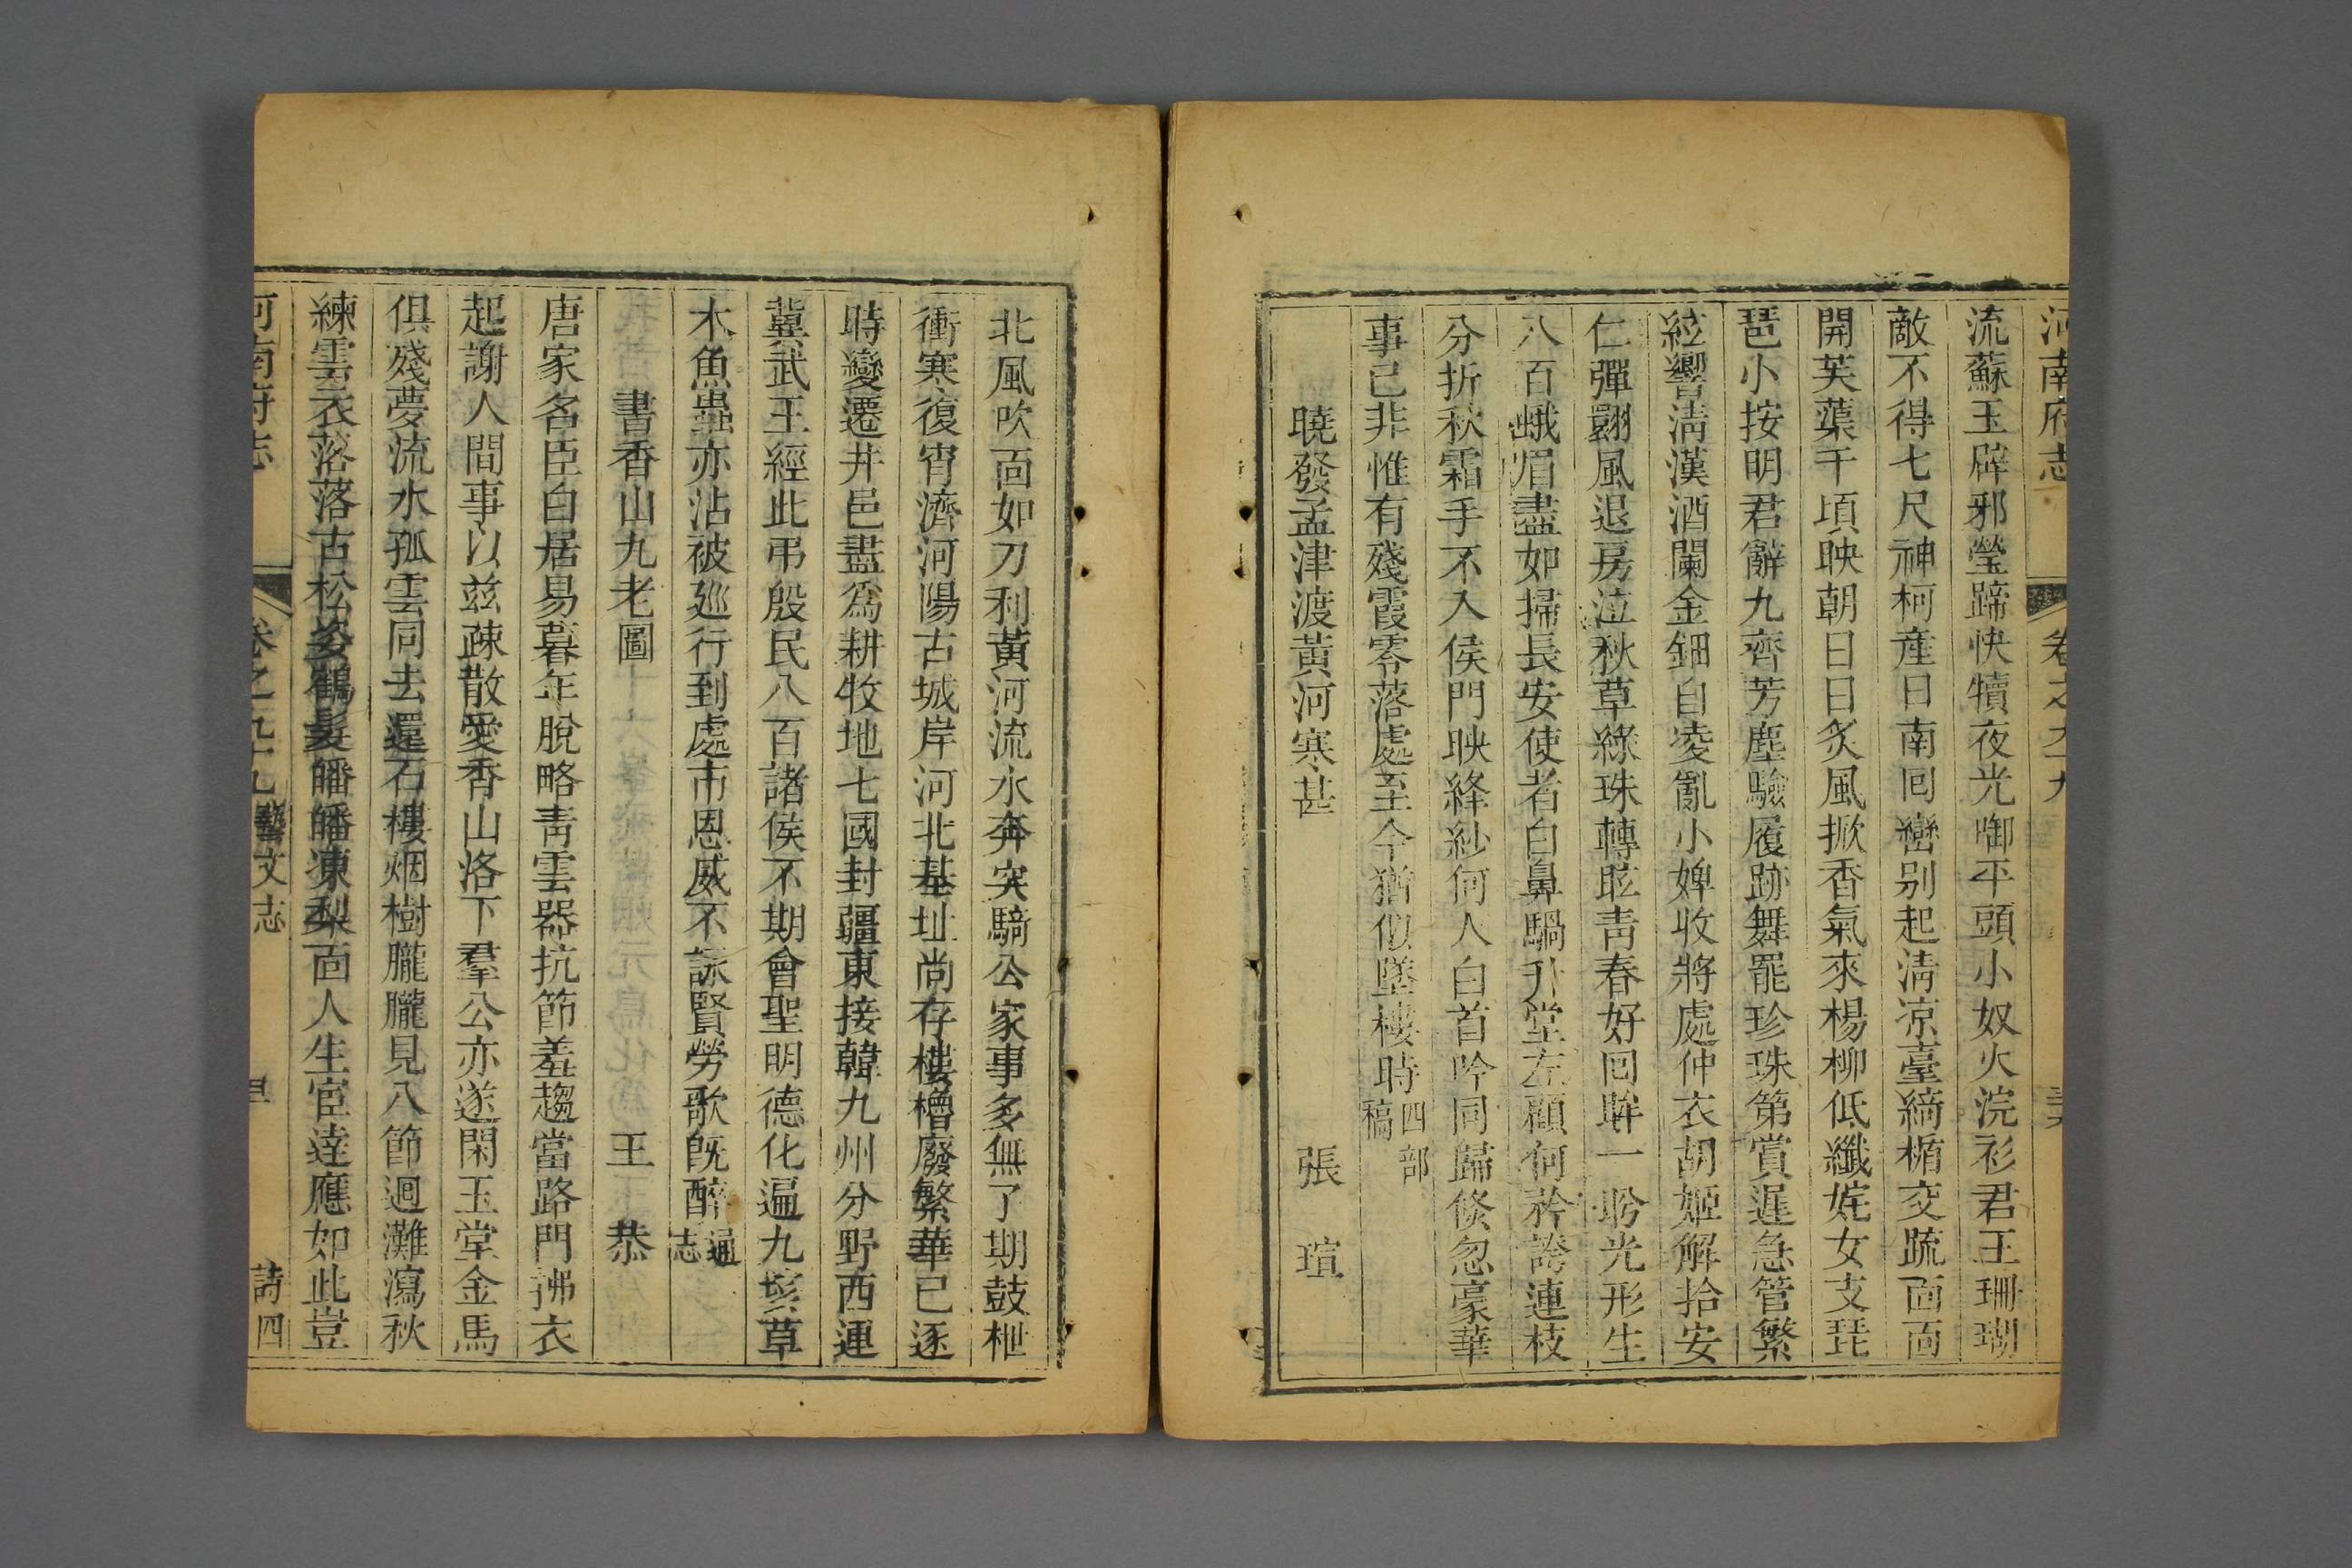 河南府志 卷之九十九
流蘇玉辟邪瑩蹄快犢夜光啣平頭小奴火浣衫君王珊瑚
敵不得七尺神柯產日南囘巒别起淸凉臺綺楯交疏面面
開芙蕖千頃映朝日日炙風掀香氣來楊柳低纖姹女支琵
琶小按明君辭九齊芳塵驗履跡舞罷珍珠第賞遲急管繁
絃響淸漢酒闌金鈿白凌亂小婢收將處仲衣胡姬解拾安
仁彈翾風退房泣秋草綠珠轉眩靑春好囘眸一盼光形生
八百峨眉盡如掃長安使者白鼻騧升堂左顧何矜誇連枝
分折秋霜手不入侯門映絳紗何人白首吟同歸倏忽豪華
事已非惟有殘霞零落處至今猶似墜樓時四部稿
曉發孟津渡黃河寒甚 張瑄
北風吹面如刀利黃河流水奔突騎公家事多無了期鼓枻
衝寒復宵濟河陽古城岸河北基址尚存樓櫓廢繁華已逐
時變遷井邑盡爲耕牧地七國封疆東接韓九州分野西連
冀武王經此弔殷民八百諸侯不期會聖明德化遍九垓草
木魚蟲亦沾被廵行到處市恩威不詠賢勞歌旣醉通志
書香山九老圖 王恭
唐家名臣白居易暮年脫略靑雲器抗節羞趨當路門拂衣
起謝人間事以兹疎散愛香山洛下羣公亦遂閑玉堂金馬
俱殘夢流水孤雲同去還石樓烟樹朧朧見八節迴灘瀉秋
練雲衣落落古松姿鶴髮皤皤凍梨面人生宦達應如此豈
河南府志 卷之九十九 藝文志 詩四